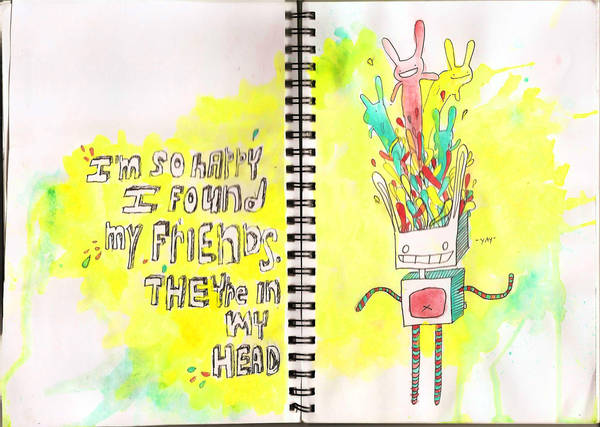 I'm so HAPPY
I FOUND
my FRIENDS.
THEY're in
MY
HEAD
-YAY-